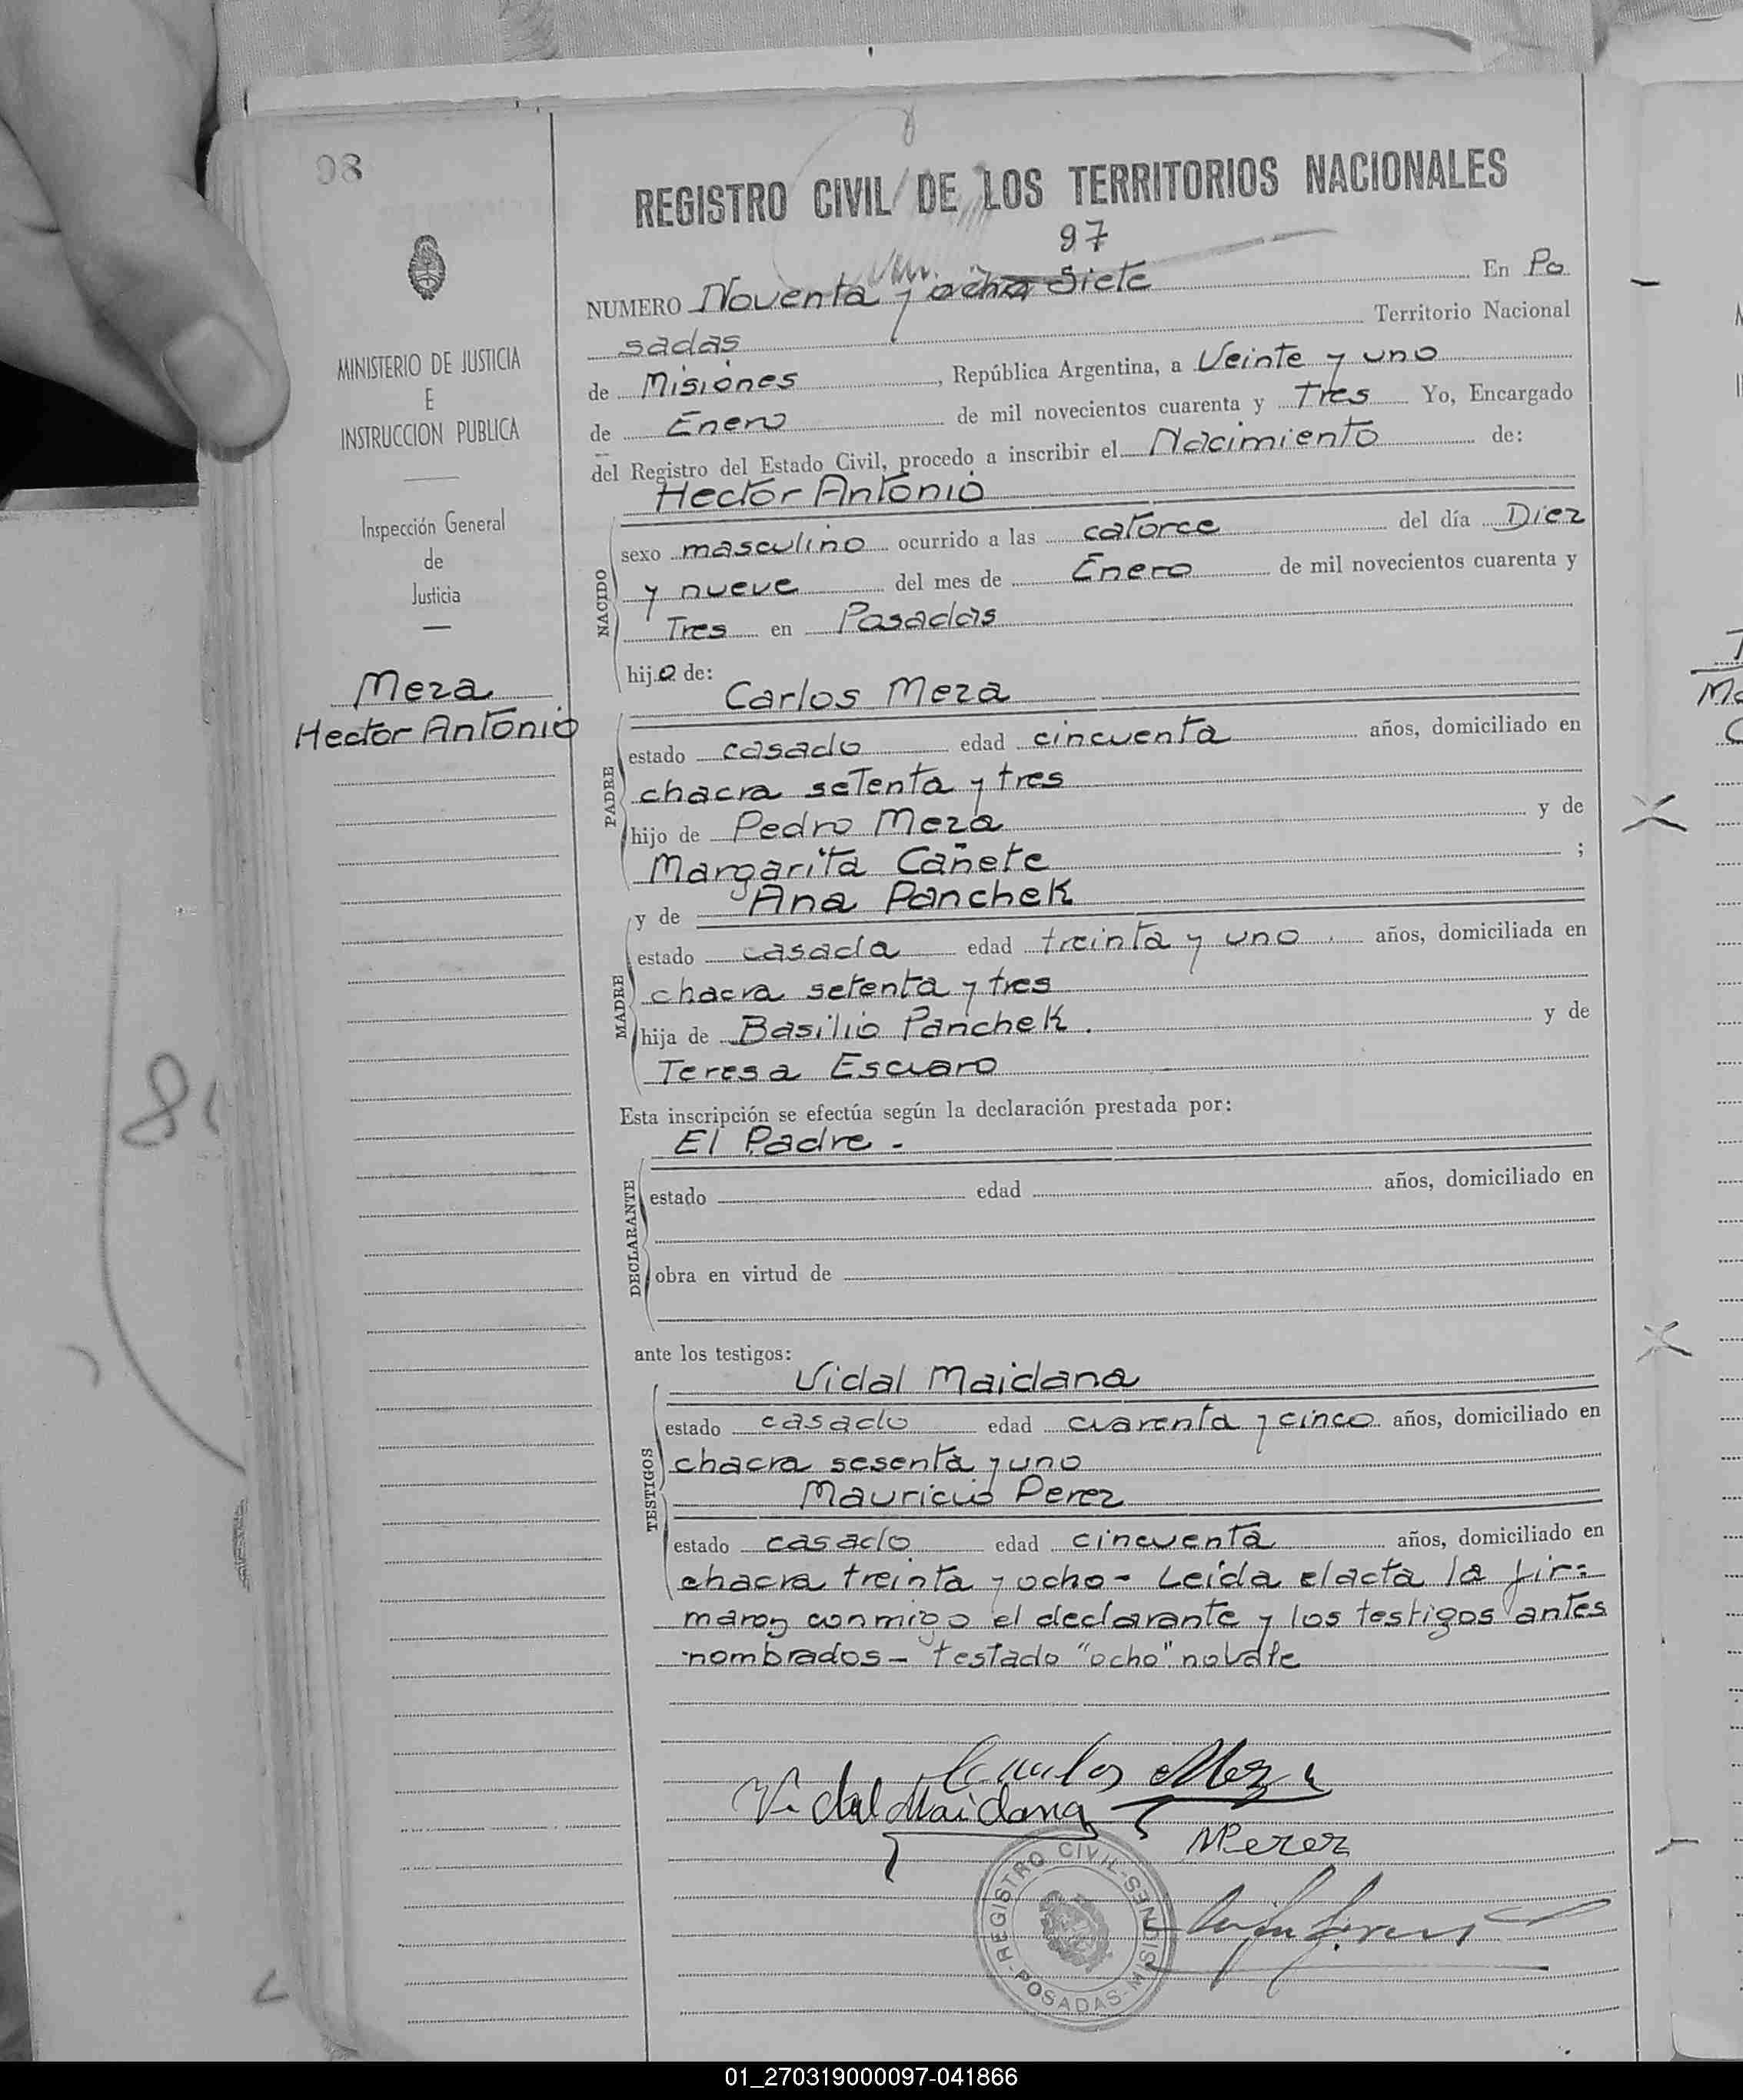 98
REGISTRO CIVIL DE LOS TERRITORIOS NACIONALES
97
NUMERO Noventa y ocho Siete En Po
sadas Territorio Nacional
de Misiones, República Argentina, a Veinte y uno
de Enero de mil novecientos cuarenta y Tres Yo, Encargado
del Registro del Estado Civil, procedo a inscribir el Nacimiento de:
MINISTERIO DE JUSTICIA
E
INSTRUCCION PUBLICA
Inspección General
de
Justicia
Meza
Hector Antonio
Hector Antonio
NACIDO
sexo masculino ocurrido a las catorce del día Diez
y nueve del mes de Enero de mil novecientos cuarenta y
Tres en Posadas
hijo de:
Carlos Meza
PADRE
estado casado edad cincuenta años, domiciliado en
chacra setenta y tres
hijo de Pedro Meza y de
Margarita Cañete ;
y de Ana Panchek
MADRE
estado casada edad treinta y uno años, domiciliada en
chacra setenta y tres
hija de Basilio Panchek. y de
Teresa Escuaro
Esta inscripción se efectúa según la declaración prestada por:
El Padre -
DECLARANTE
estado edad años, domiciliado en
obra en virtud de
ante los testigos:
Vidal Maidana
TESTIGOS
estado casado edad cuarenta y cinco años, domiciliado en
chacra sesenta y uno
Mauricio Perez
estado casado edad cincuenta años, domiciliado en
chacra treinta y ocho - Leida el acta la fir=
maron conmigo el declarante y los testigos antes
nombrados - testado "ocho" no vale
Carlos Meza
Vidal Maidana
MPerez
REGISTRO CIVIL - MISIONES - POSADAS
01_270319000097-041866